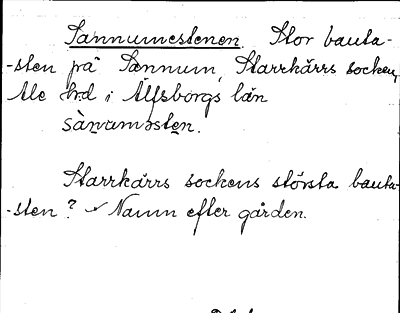 Sannumestenen. Stor bauta-
-sten på Sannum, Starrkärrs socken,
Ale hrd i Älfsborgs län
sànuməsten.
Starrkärrs sockens största bauta-
-sten? Namn efter gården.